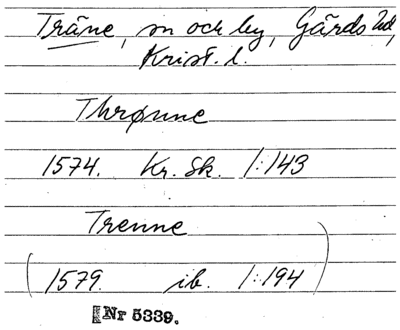 Träne, sn och by, Gärds hd,
Krist. l.
Thrønne
1574. Kr. Sk. 1:143
Trenne
(1579. ib. 1:194)
Nr 5339.